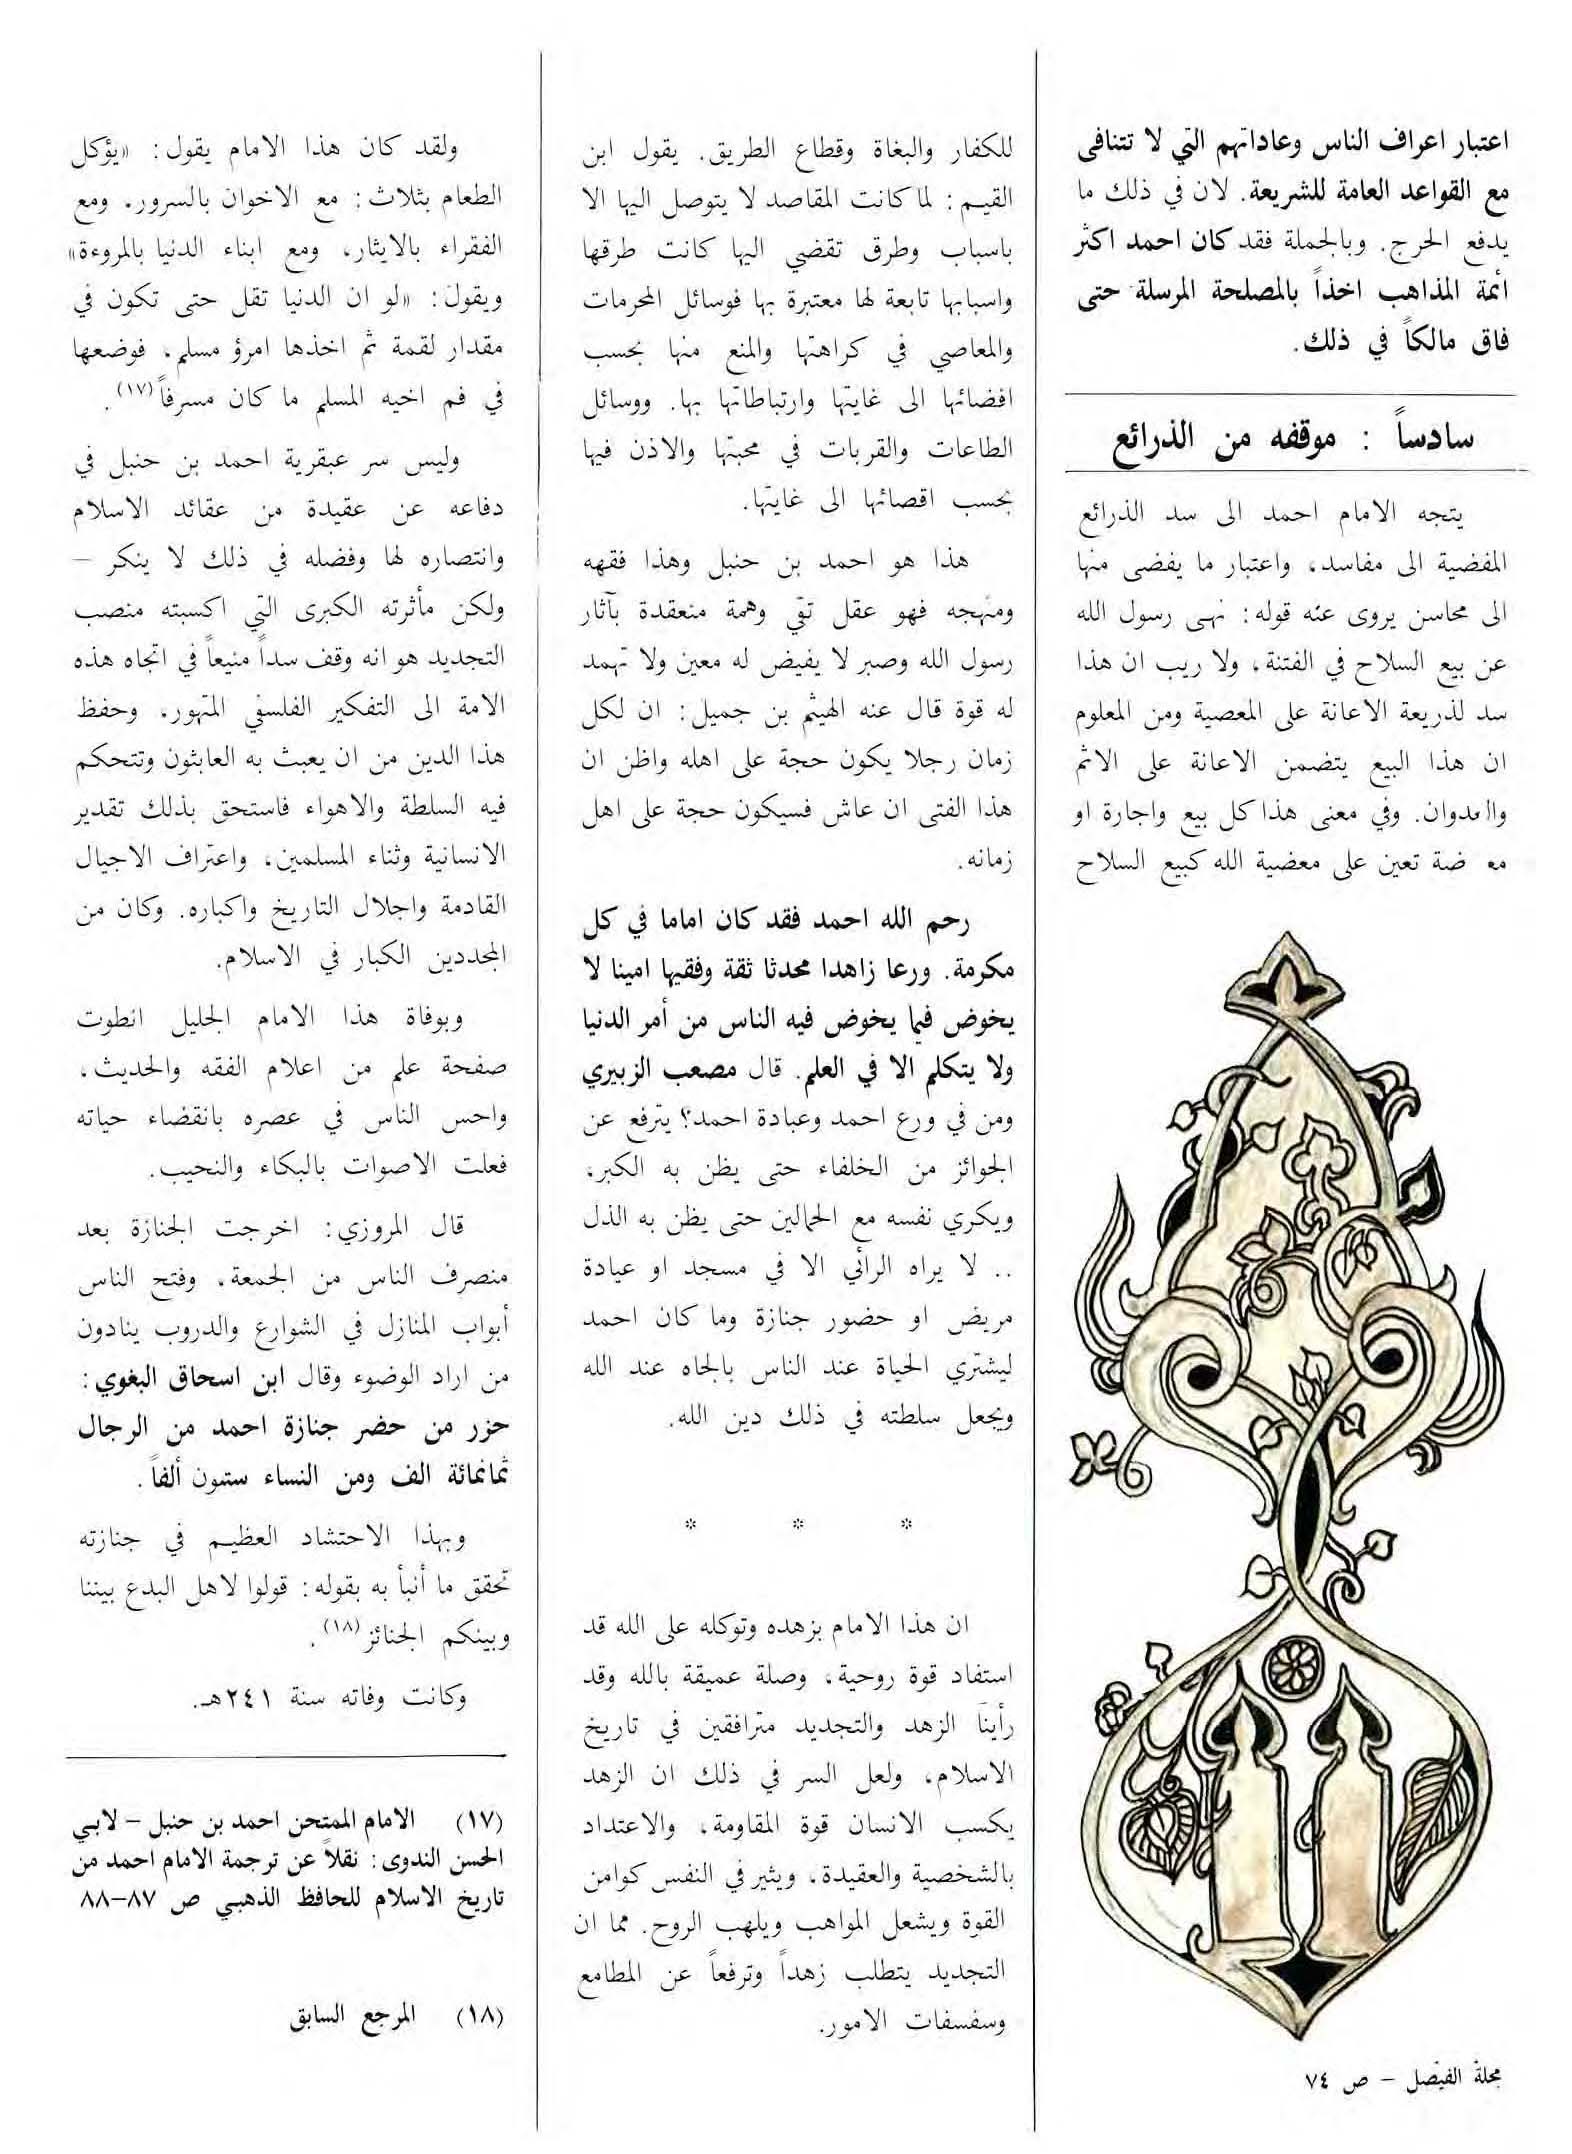 اعتبار اعراف الناس وعاداتهم التي لا تتنافى
مع القواعد العامة للشريعة. لان في ذلك ما
يدفع الحرج. وبالجملة فقد كان احمد اكثر
ائمة المذاهب اخذاً بالمصلحة المرسلة حتى
فاق مالكاً في ذلك.
سادساً : موقفه من الذرائع
يتجه الامام احمد الى سد الذرائع
المفضية الى مفاسد، واعتبار ما يفضى منها
الى محاسن يروى عنه قوله: نهى رسول الله
عن بيع السلاح في الفتنة، ولا ريب ان هذا
سد لذريعة الاعانة على المعصية ومن المعلوم
ان هذا البيع يتضمن الاعانة على الاثم
والعدوان. وفي معنى هذا كل بيع واجارة او
ضة تعين على معضية الله كبيع السلاح
للكفار والبغاة وقطاع الطريق. يقول ابن
القيم: لما كانت المقاصد لا يتوصل اليها الا
باسباب وطرق تقضي اليها كانت طرقها
واسبابها تابعة لها معتبرة بها فوسائل المحرمات
والمعاصي في كراهتها والمنع منها بحسب
افضائها الى غايتها وارتباطاتها بها. ووسائل
الطاعات والقربات في محبتها والاذن فيها
بحسب اقصائها الى غايتها.
هذا هو احمد بن حنبل وهذا فقهه
ومنهجه فهو عقل تقي وهمة منعقدة بآثار
رسول الله وصبر لا يفيض له معين ولا تهمد
له قوة قال عنه الهيثم بن جميل: ان لكل
زمان رجلا يكون حجة على اهله واظن ان
هذا الفتى ان عاش فسيكون حجة على اهل
زمانه.
رحم الله احمد فقد كان اماما في كل
مكرمة. ورعا زاهدا محدثا ثقة وفقيها امينا لا
يخوض فيما يخوض فيه الناس من أمر الدنيا
ولا يتكلم الا في العلم. قال مصعب الزبيري
ومن في ورع احمد وعبادة احمد؟ يترفع عن
الجوائز من الخلفاء حتى يظن به الكبر،
ويكري نفسه مع الحمالين حتى يظن به الذل
.. لا يراه الرائي الا في مسجد او عيادة
مريض او حضور جنازة وما كان احمد
ليشتري الحياة عند الناس بالجاه عند الله
ويجعل سلطته في ذلك دين الله.
* * *
ان هذا الامام بزهده وتوكله على الله قد
استفاد قوة روحية، وصلة عميقة بالله وقد
رأينا الزهد والتجديد مترافقين في تاريخ
الاسلام، ولعل السر في ذلك ان الزهد
يكسب الانسان قوة المقاومة، والاعتداد
بالشخصية والعقيدة، ويثير في النفس كوامن
القوة ويشعل المواهب ويلهب الروح. مما ان
التجديد يتطلب زهداً وترفعاً عن المطامع
وسفسفات الامور.
ولقد كان هذا الامام يقول: «يؤكل
الطعام بثلاث: مع الاخوان بالسرور، ومع
الفقراء بالايثار، ومع ابناء الدنيا بالمروءة»
ويقول: «لو ان الدنيا تقل حتى تكون في
مقدار لقمة ثم اخذها امرؤ مسلم، فوضعها
في فم اخيه المسلم ما كان مسرفاً(١٧).
وليس سر عبقرية احمد بن حنبل في
دفاعه عن عقيدة من عقائد الاسلام
وانتصاره لها وفضله في ذلك لا ينكر –
ولكن مأثرته الكبرى التي اكسبته منصب
التجديد هو انه وقف سداً منيعاً في اتجاه هذه
الامة الى التفكير الفلسفي المتهور، وحفظ
هذا الدين من ان يعبث به العابثون وتتحكم
فيه السلطة والاهواء فاستحق بذلك تقدير
الانسانية وثناء المسلمين، واعتراف الاجيال
القادمة واجلال التاريخ واكباره. وكان من
المجددين الكبار في الاسلام.
وبوفاة هذا الامام الجليل انطوت
صفحة علم من اعلام الفقه والحديث،
واحس الناس في عصره بانقضاء حياته
فعلت الاصوات بالبكاء والنحيب.
قال المروزي: اخرجت الجنازة بعد
منصرف الناس من الجمعة، وفتح الناس
أبواب المنازل في الشوارع والدروب ينادون
من اراد الوضوء وقال ابن اسحاق البغوي:
حزر من حضر جنازة احمد من الرجال
ثمانمائة الف ومن النساء ستون ألفاً.
وبهذا الاحتشاد العظيم في جنازته
تحقق ما أنبأ به بقوله: قولوا لاهل البدع بيننا
وبينكم الجنائز(١٨).
وكانت وفاته سنة ٢٤١هـ.
(١٧) الامام الممتحن احمد بن حنبل – لابي
الحسن الندوى: نقلاً عن ترجمة الامام احمد من
تاريخ الاسلام للحافظ الذهبي ص ٨٧–٨٨
(١٨) المرجع السابق
مجلة الفيصل – ص ٧٤